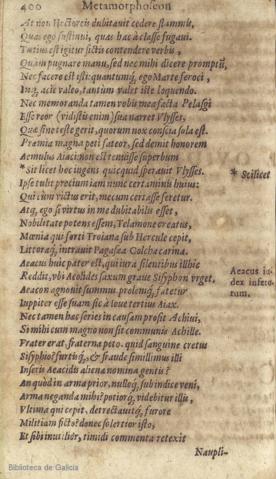 400 Metamorphoseon
At non Hectoreis dubitauit cedere flammis,
Quas ego sustinui, quas hac à classe fugaui.
Tutius est igitur fictis contendere verbis,
Quàm pugnare manu, sed nec mihi dicere promptũ,
Nec facere est isti: quantumq, ego Marte feroci,
Inq, acie valeo, tantum valet iste loquendo.
Nec memoranda tamen vobis mea facta Pelasgi
Esse reor (vidistis enim) sua narret Vlysses,
Quæ sine teste gerit, quorum nox conscia sola est.
Præmia magna peti fateor, sed demit honorem
Aemulus Aiaci: non est tenuisse superbum
*Sit licet hoc ingens quicquid sperauit Vlysses.
* Scilicet
Ipse tulit precium iam nunc certaminis huius:
Qui cum victus erit, mecum certasse feretur.
Atq, ego si virtus in me dubitabilis esset,
Nobilitate potens essem, Telamone creatus,
Mœnia qui forti Troiana sub Hercule cepit,
Littoraq, intrauit Pagasæa Colcha carina.
Aeacus huic pater est, qui iura silentibus illhic
Reddit, vbi Aeolides saxum graue Sisyphon vrget.
Aeacus iu-
dex infero-
rum.
Aeacon agnouit summus prolemq, fatetur
Iuppiter esse suam sic à Ioue tertius Aiax.
Nec tamen hæc series in causam prosit Achiui,
Si mihi cum magno non sit communis Achille.
Frater erat, fraterna peto. quid sanguine cretus
Sisyphio? furtisq,, & fraude simillimus illi
Inseris Aeacidis aliena nomina gentis?
An quòd in arma prior, nulloq, sub indice veni,
Arma neganda mihi? potiorq, videbitur ille,
Vltima qui cepit, detrectauitq, furore
Militiam ficto? donec solertior isto,
Et sibi inutilior, timidi commenta retexit
Naupli-
Biblioteca de Galicia